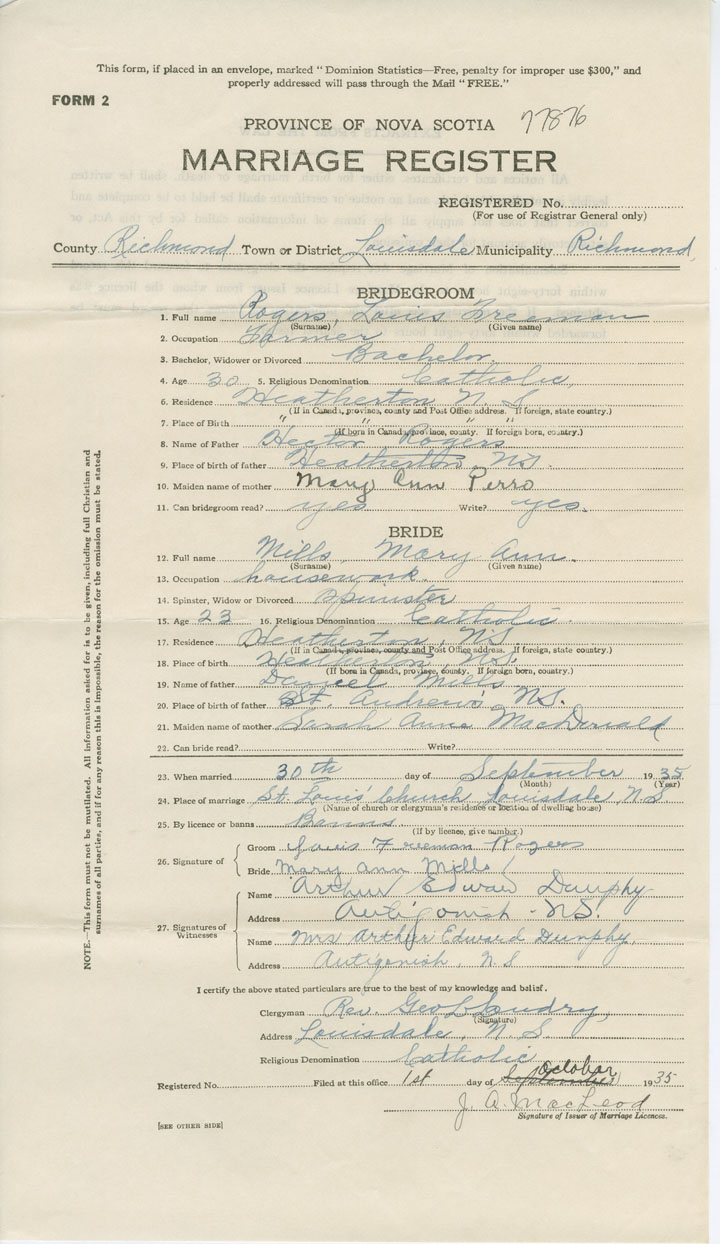 This form, if placed in an envelope, marked "Dominion Statistics—Free, penalty for improper use $300," and
properly addressed will pass through the Mail "FREE."
FORM 2
PROVINCE OF NOVA SCOTIA 77876
MARRIAGE REGISTER
REGISTERED No.
(For use of Registrar General only)
County Richmond Town or District Louisdale Municipality Richmond
BRIDEGROOM
1. Full name Rogers, Louis Freeman
(Surname) (Given name)
2. Occupation Farmer
3. Bachelor, Widower or Divorced Bachelor
4. Age 30 5. Religious Denomination Catholic
6. Residence Heatherton N S
(If in Canada, province, county and Post Office address. If foreign, state country.)
7. Place of Birth " " " "
(If born in Canada, province, county. If foreign born, country.)
8. Name of Father Hector Rogers
9. Place of birth of father Heatherton NS.
10. Maiden name of mother Mary Ann Perro
11. Can bridegroom read? yes Write? yes.
BRIDE
12. Full name Mills, Mary Ann.
(Surname) (Given name)
13. Occupation housework.
14. Spinster, Widow or Divorced Spinster
15. Age 23 16. Religious Denomination Catholic.
17. Residence Heatherton, N.S.
(If in Canada, province, county and Post Office address. If foreign, state country.)
18. Place of birth Heatherton, N.S.
(If born in Canada, province, county. If foreign born, country.)
19. Name of father Daniel Mills
20. Place of birth of father St. Andrew's, NS.
21. Maiden name of mother Sarah Anne MacDonald
22. Can bride read? Write?
23. When married 30th day of September 1935
(Month) (Year)
24. Place of marriage St. Louis' Church Louisdale, N.S
(Name of church or clergyman's residence or location of dwelling house)
25. By licence or banns Banns
(If by licence, give number.)
26. Signature of Groom Louis Freeman Rogers
Bride Mary Ann Mills
27. Signatures of Witnesses
Name Arthur Edward Dunphy
Address Antigonish - N.S.
Name Mrs Arthur Edward Dunphy,
Address Antigonish, N.S
I certify the above stated particulars are true to the best of my knowledge and belief.
Clergyman Rev. Geo L Landry,
(Signature)
Address Louisdale, N.S.
Religious Denomination Catholic
October
Registered No. Filed at this office 1st day of September 1935
J. A. MacLeod
Signature of Issuer of Marriage Licences.
[SEE OTHER SIDE]
NOTE.—This form must not be mutilated. All information asked for is to be given, including full Christian and
surnames of all parties, and if for any reason this is impossible, the reason for the omission must be stated.